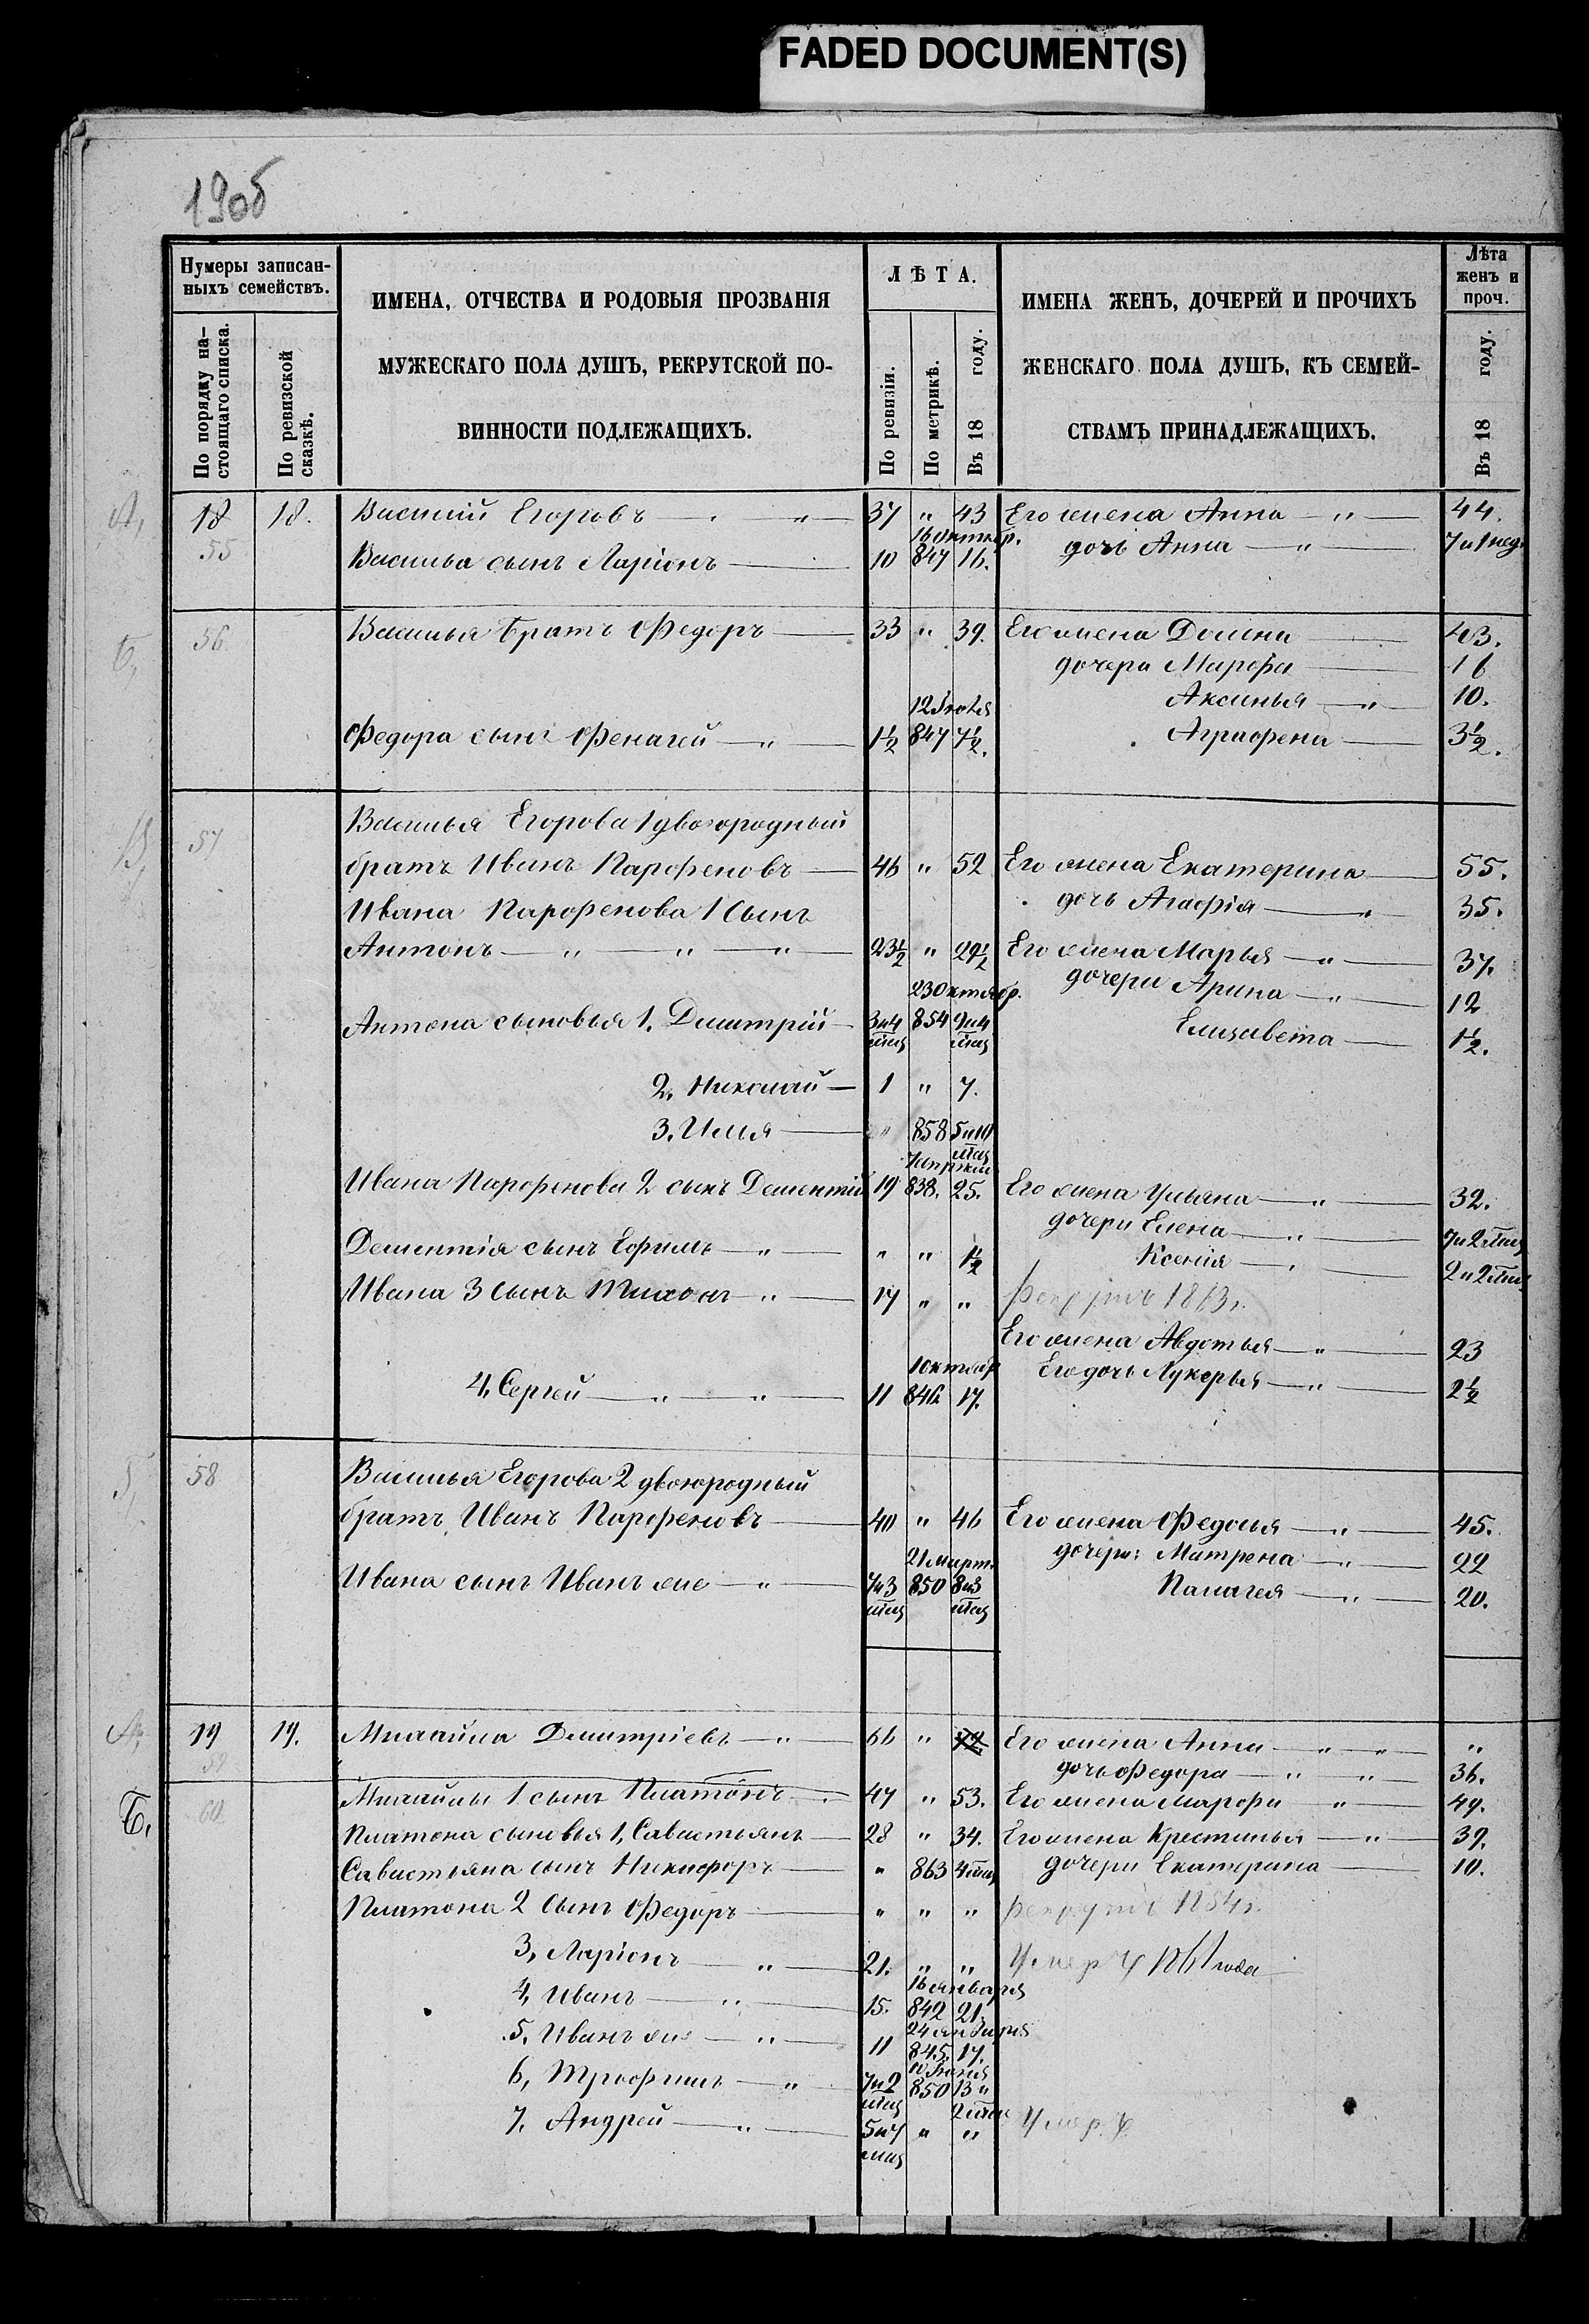 FADED DOCUMENT(S)
190б
Нумеры записан-
ныхъ семействъ.
По порядку на-
стоящаго списка.
По ревизской
сказкѣ.
ИМЕНА, ОТЧЕСТВА И РОДОВЫЯ ПРОЗВАНІЯ
МУЖЕСКАГО ПОЛА ДУШЪ, РЕКРУТСКОЙ ПО-
ВИННОСТИ ПОДЛЕЖАЩИХЪ.
ЛѢТА.
По ревизіи.
По метрикѣ.
Въ 18 году.
ИМЕНА ЖЕНЪ, ДОЧЕРЕЙ И ПРОЧИХЪ
ЖЕНСКАГО ПОЛА ДУШЪ, КЪ СЕМЕЙ-
СТВАМЪ ПРИНАДЛЕЖАЩИХЪ.
Лѣта
женъ и
проч.
Въ 18 году.
А, 18 18. Василій Егоровъ — „ — 37 „ 43 Его жена Анна — „ — 44.
55 16 октябр. дочь Анна — „ — 7 и 1 нед.
Василья сынъ Ларіонъ — 10 847 16.
Б, 56 Василья братъ Федоръ — 33 „ 39. Его жена Домна — 43.
дочери Марфа — 16
12 Іюля Аксинья — „ — 10.
Федора сынъ — „ — 1½ 847 7½. Аграфена — 3½.
В, 57 Василья Егорова 1 двоюродный
братъ Иванъ Парфеновъ — 46 „ 52 Его жена Екатерина — 55.
Ивана Парфенова 1 сынъ дочь Агафія — „ 35.
Антонъ — „ — „ — „ 23½ „ 29½ Его жена Марья — „ — 37.
23 октябр. дочери Арина — „ — 12
Антона сыновья 1. Дмитрій — 3 и 4 мец 854 9 и 4 мец Елизавета — 1½.
2, Николай — 1 „ 7.
3. Илья — „ 858 5 и 10 мец
7 апрѣля
Ивана Парфенова 2 сынъ Дементій 19 838. 25. Его жена Ульяна — „ — 32.
дочери Елена — „ — 7 и 2 мец
Дементія сынъ Ефимъ — „ — „ „ 1½ Ксенія — „ — 2 и 2 мец
Ивана 3 сынъ Тихонъ — „ — 17 „ „ рекрутъ 1863 г.
Его жена Авдотья — „ — 23
1 октябр Его дочь Лукерья — „ — 2½
4, Сергей — „ — „ — 11 846 17.
58 Василья Егорова 2 двоюродный
братъ Иванъ Парфеновъ — 40 „ 46 Его жена Федосья — „ — 45.
21 март. дочери: Матрена — „ 22
Ивана сынъ Иванъ же — „ — 7 и 3 мец 850 8 и 3 мец Палагея — „ — 20.
А, 19 19. Михайла Дмитріевъ — „ — 66 „ Его жена Анна — „ — „ — „
59 дочь Федора — „ „ — 36.
Б. 60 Михайлы 1 сынъ Платонъ — 47 „ 53. Его жена Марфа „ — 49.
Платона сыновья 1, Савастьянъ — 28 „ 34. Его жена Крестинья — „ — 39.
Савастьяна сынъ Никифоръ — „ 863 4 мец дочери Екатерина — 10.
Платона 2 сынъ Федоръ — „ „ „ рекрутъ 1854 г.
3, Ларіонъ — „ — 21. „ „ Умеръ 1861 года
16 января
4, Иванъ — „ — 15. 842 21.
24 января
5. Иванъ же — „ — 11 845. 17.
10 Іюня
6, Трофимъ — „ 7 и 2 мец 850 13 и 2 мец
7. Андрей — „ — 5 и 7 мец „ „ Умеръ